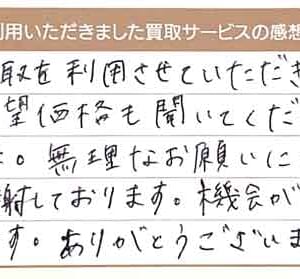 利用いただきました買取サービスの感想
取を利用させていただき
望価格も聞いてくだ
。無理なお願いに
謝しております。機会が
す。ありがとうございま